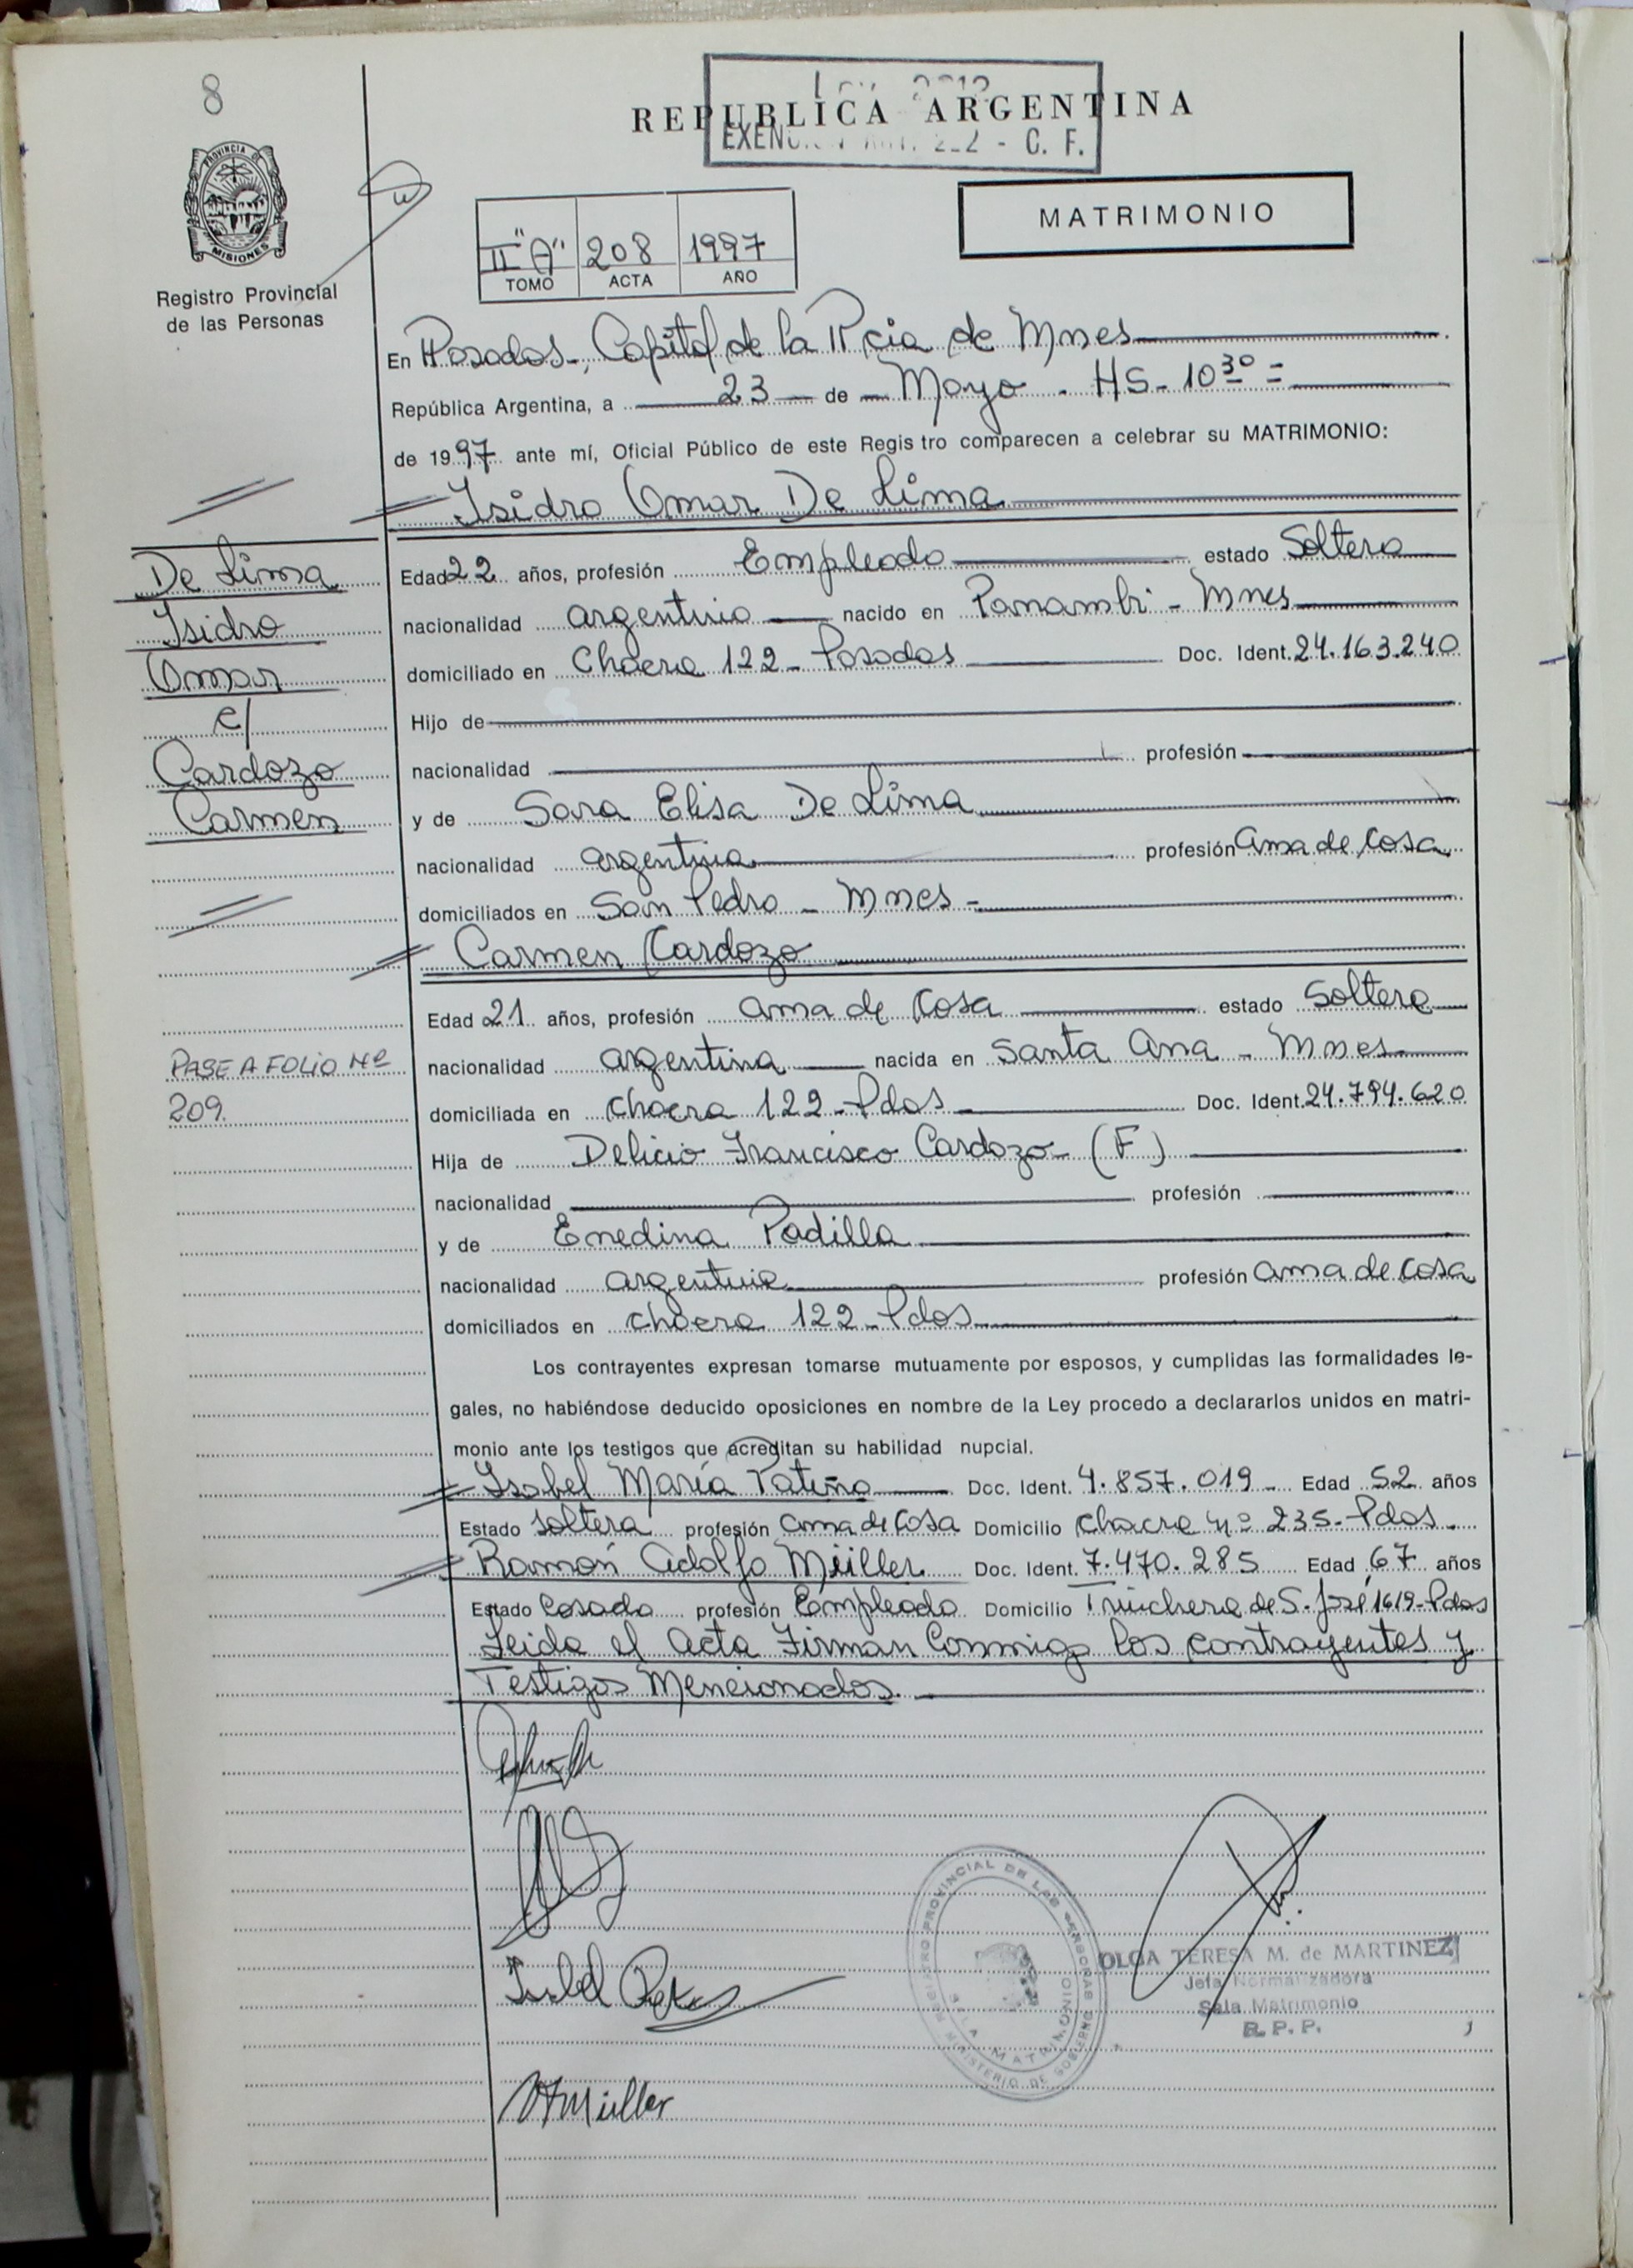 8
REPUBLICA ARGENTINA
EXENC. - C. F.
PROVINCIA DE
MISIONES
Registro Provincial
de las Personas
MATRIMONIO
II "A" 208 1997
TOMO ACTA AÑO
En Posadas, Capital de la Pcia de Mnes
República Argentina, a 23 de Mayo - HS - 10 30 =
de 1997 ante mí, Oficial Público de este Regis tro comparecen a celebrar su MATRIMONIO:
Isidro Omar De Lima
Edad 22 años, profesión Empleado estado Soltero
nacionalidad argentino nacido en Panambi - Mnes
domiciliado en Chacra 122 - Posadas Doc. Ident. 24.163.240
Hijo de
nacionalidad profesión
y de Sara Elisa De Lima
nacionalidad argentina profesión ama de casa
domiciliados en San Pedro - Mnes -
Carmen Cardozo
Edad 21 años, profesión ama de casa estado Soltera
nacionalidad argentina nacida en Santa Ana - Mnes
domiciliada en chacra 122 - Pdas Doc. Ident. 24.794.620
Hija de Delicio Francisco Cardozo - (F)
nacionalidad profesión
y de Enedina Padilla
nacionalidad argentina profesión ama de casa
domiciliados en chacra 122 - Pdas
Los contrayentes expresan tomarse mutuamente por esposos, y cumplidas las formalidades le-
gales, no habiéndose deducido oposiciones en nombre de la Ley procedo a declararlos unidos en matri-
monio ante los testigos que acreditan su habilidad nupcial.
Isabel María Patiño Doc. Ident. 4.857.019 Edad 52 años
Estado soltera profesión ama de casa Domicilio chacra nº 235 - Pdas
Ramón Adolfo Müller Doc. Ident. 7.470.285 Edad 67 años
Estado Casado profesión Empleado Domicilio Trinchera de S. José 1619 - Pdas
Leida el acta Firman Conmigo los contrayentes y
Testigos Mencionados.
De Lima
Isidro
Omar
c/
Cardozo
Carmen
PASE A FOLIO Nº
209.
Isabel
Müller
REGISTRO PROVINCIAL DE LAS PERSONAS
MINISTERIO DE GOBIERNO
SALA MATRIMONIO
OLGA TERESA M. de MARTINEZ
Jefa Normalizadora
Sala Matrimonio
R. P. P.